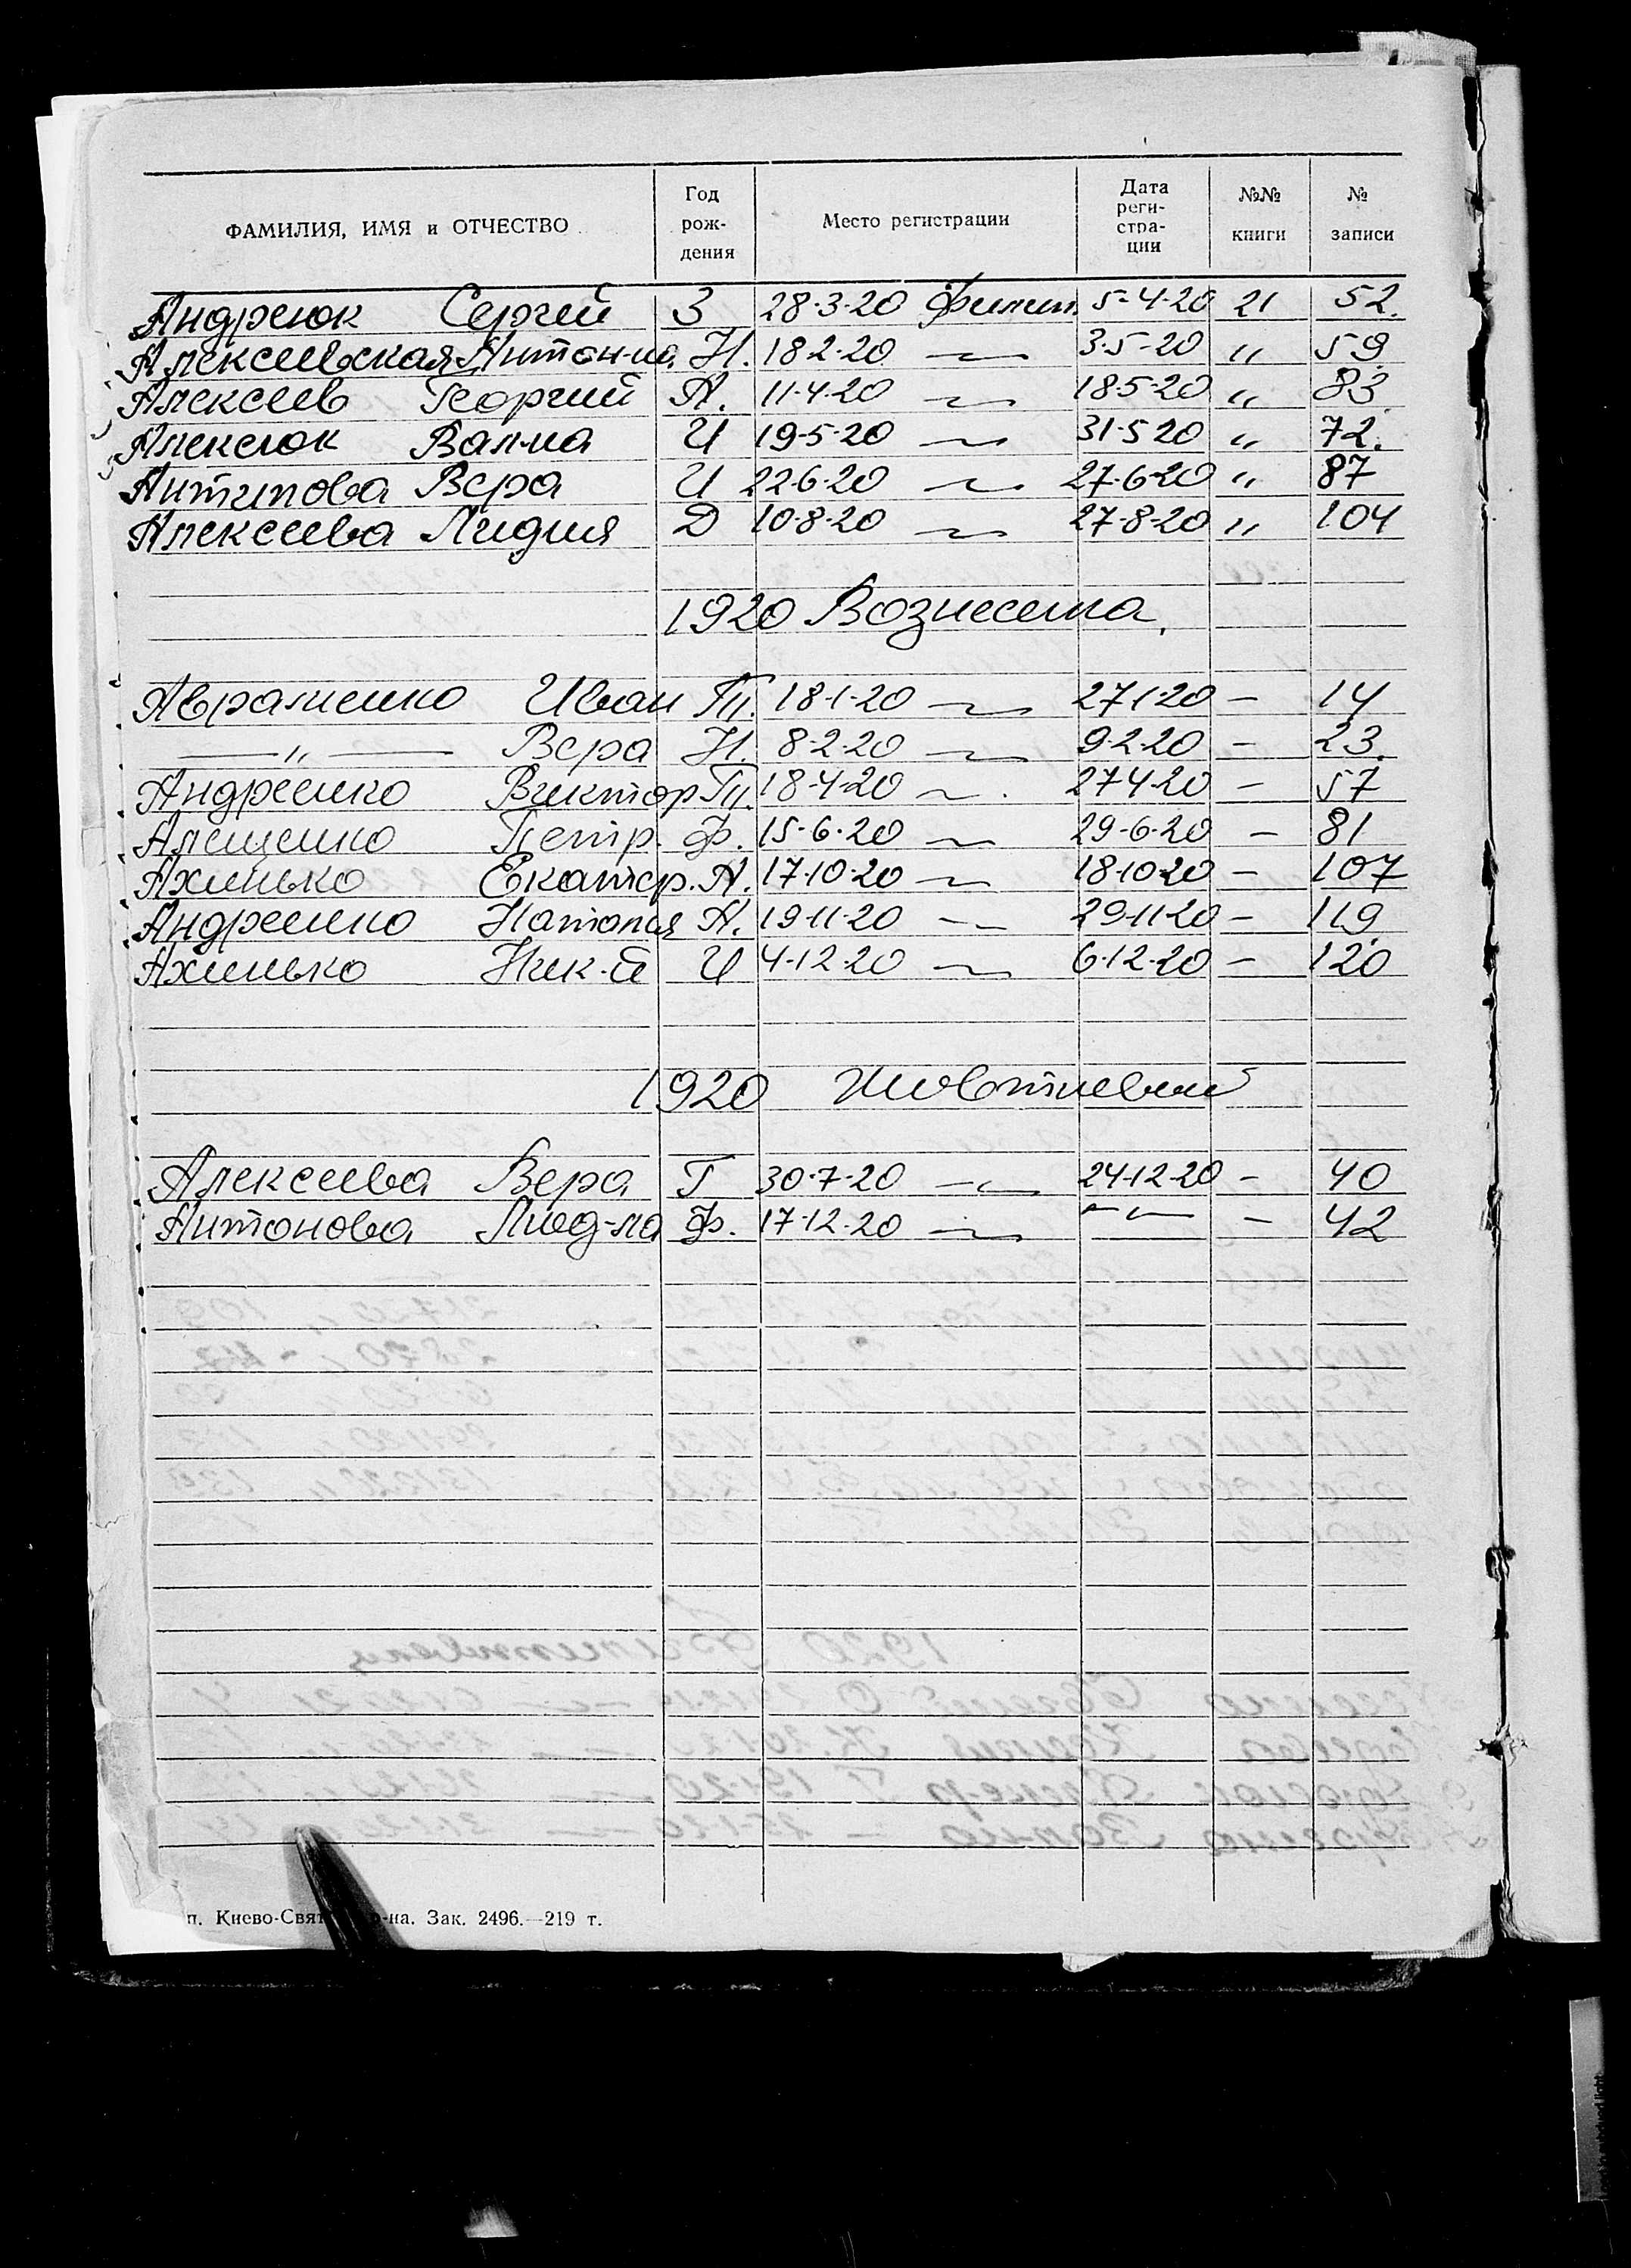 ФАМИЛИЯ, ИМЯ и ОТЧЕСТВО Год рождения Место регистрации Дата регистрации №№ книги № записи
Андреюк Сергей З 28·3·20 Филип. 5-4·20 21 52.
Алексеевская Антон-на Н. 18·2·20 —〃— 3·5-20 〃 59
Алексеев Георгий А. 11·4·20 —〃— 18·5·20 〃 83
Алексюк Вал-на И 19·5·20 —〃— 31·5 20 〃 72.
Антипова Вера И 22·6·20 —〃— 27·6·20 〃 87
Алексеева Лидия Д 10·8·20 —〃— 27-8·20 〃 104
1920 Вознесенка
Авраменко Иван П. 18·1·20 —〃— 27·1·20 — 14
—〃— Вера Н. 8·2·20 —〃— 9·2·20 — 23
Андреенко Виктор П. 18·4·20 —〃— 27·4·20 — 57
Алещенко Петр. Ф. 15·6·20 —〃— 29·6·20 — 81
Ахинько Екатер. А. 17·10·20 —〃— 18·10·20 — 107
Андреенко Наталья А. 19·11·20 —〃— 29·11·20 — 119
Ахинько Ник-й И 4·12·20 —〃— 6·12·20 — 120
1920 Жовтневый
Алексеева Вера Г 30·7·20 —〃— 24·12·20 — 40
Антонова Люд-ла Ф. 17·12·20 —〃— —〃— — 42
п. Киево-Свят р-на. Зак. 2496.—219 т.